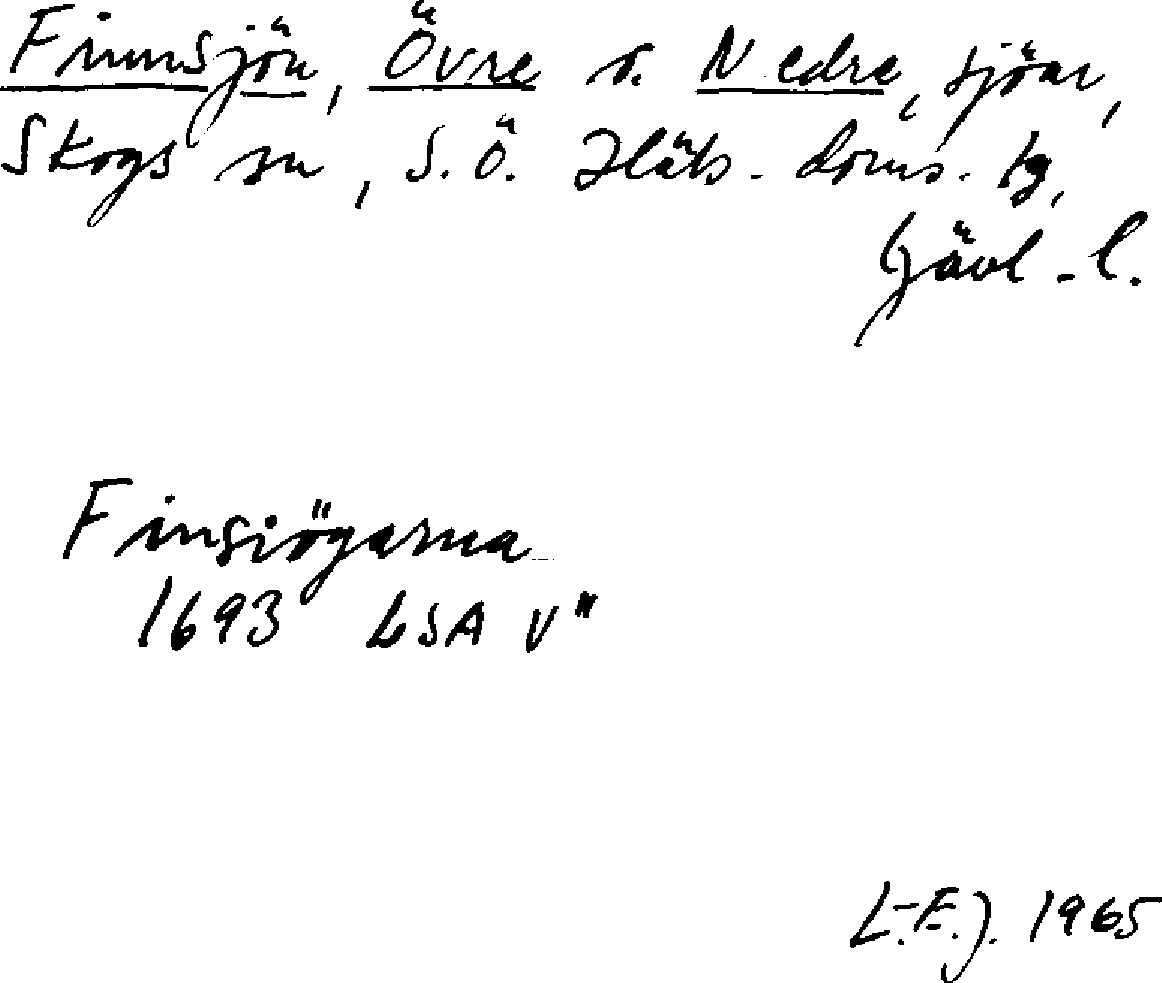 Finnsjön, Övre o. Nedre, sjöar,
Skogs sn, S.Ö. Häls. doms. tg,
Gävl.l.
Finsiögarna
1693 LSA V"
L.-E.J. 1965